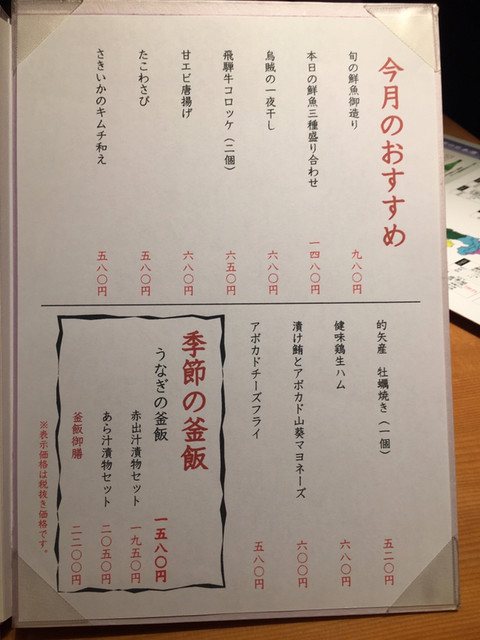 今月のおすすめ
旬の鮮魚御造り 九八〇円
本日の鮮魚三種盛り合わせ 一四八〇円
烏賊の一夜干し 六八〇円
飛騨牛コロッケ(二個) 六五〇円
甘エビ唐揚げ 六八〇円
たこわさび 五八〇円
さきいかのキムチ和え 五八〇円
的矢産 牡蠣焼き(一個) 五二〇円
健味鶏生ハム 六八〇円
漬け鮪とアボカド山葵マヨネーズ 六〇〇円
アボカドチーズフライ 五八〇円
季節の釜飯
うなぎの釜飯 一五八〇円
赤出汁漬物セット 一九五〇円
あら汁漬物セット 二〇五〇円
釜飯御膳 二二〇〇円
※表示価格は税抜き価格です。